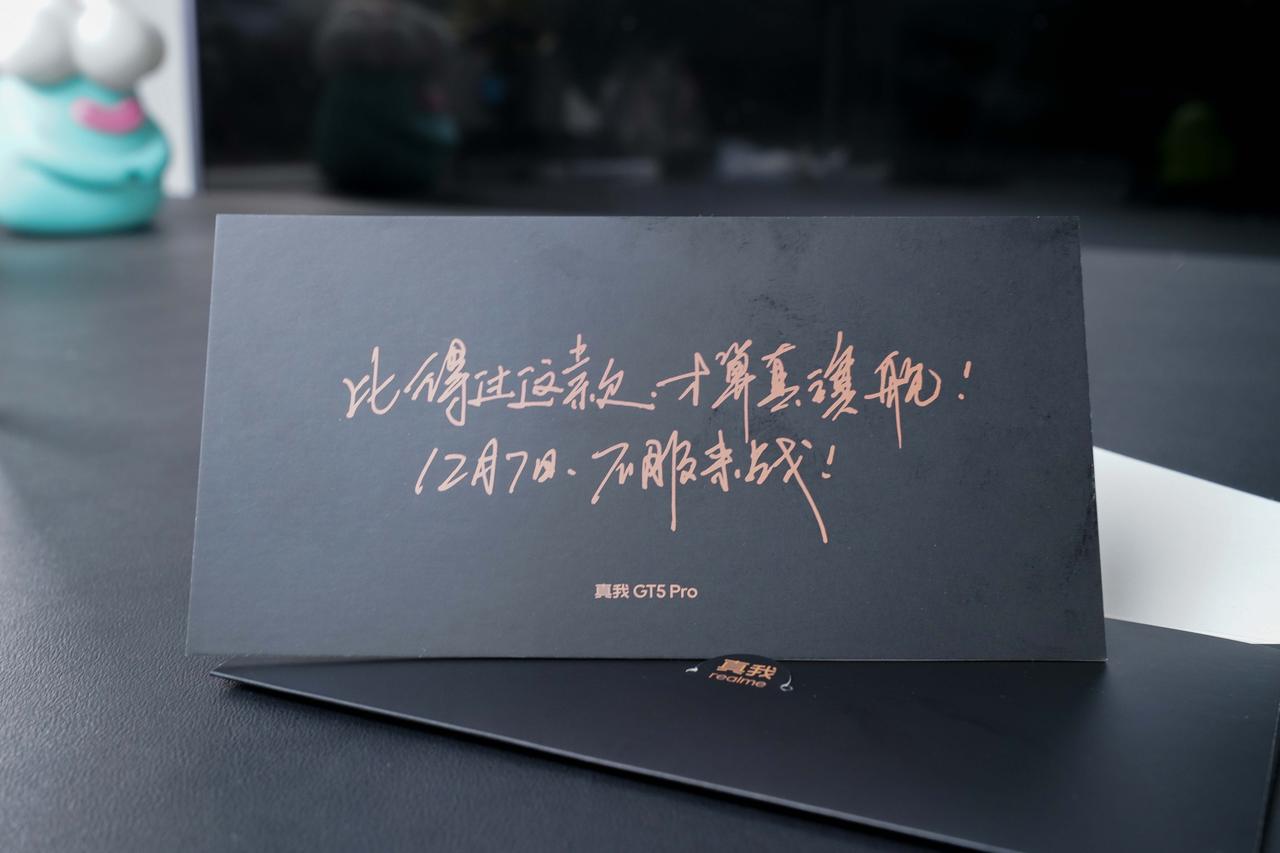 比得过这款，才算真旗舰！
12月7日，不服来战！
真我 GT5 Pro
真我
realme